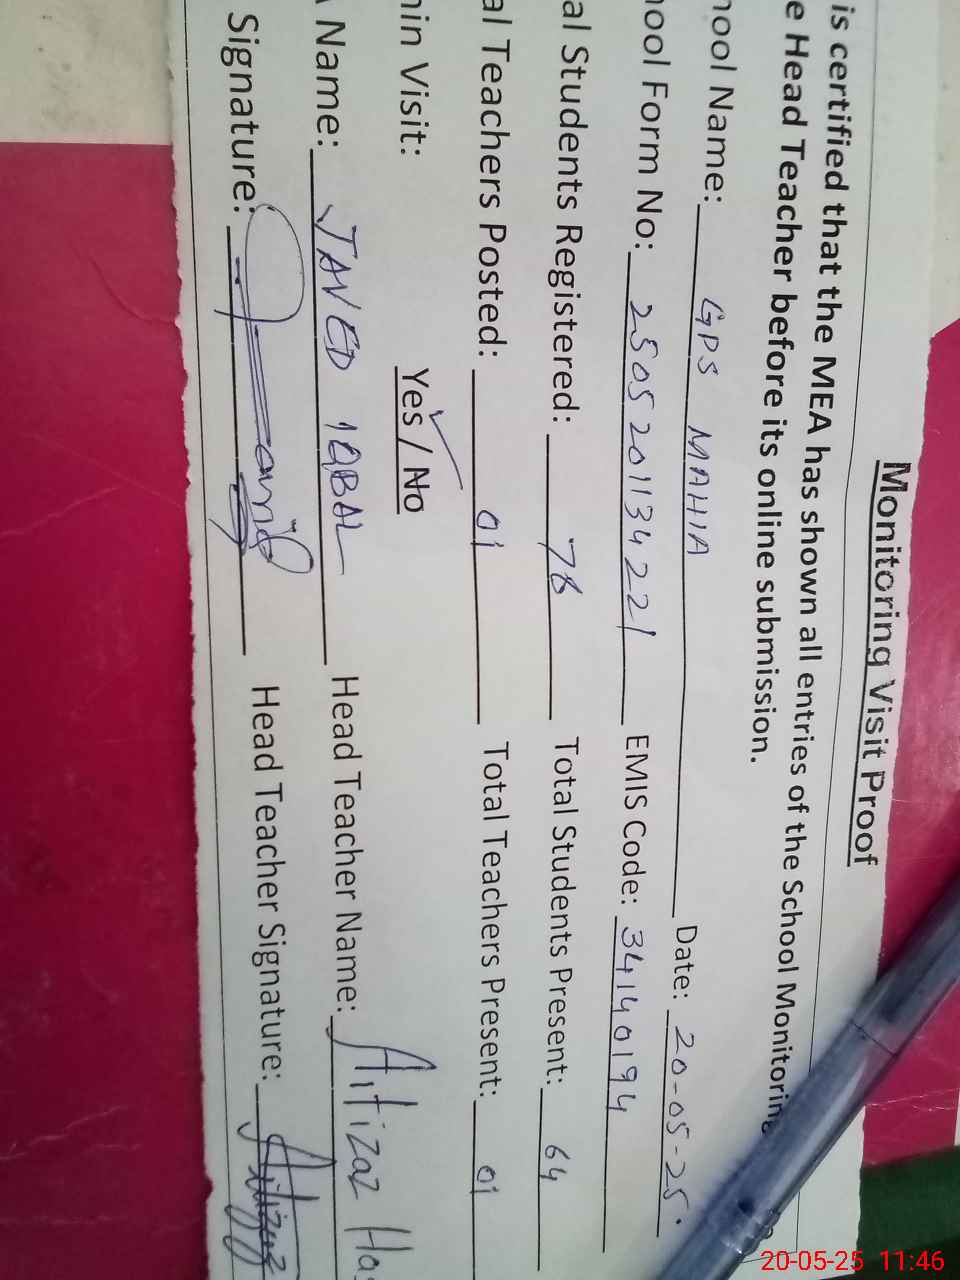 Monitoring Visit Proof
is certified that the MEA has shown all entries of the School Monitoring
e Head Teacher before its online submission.
hool Name: GPS MAHIA Date: 20-05-25.
hool Form No: 2505201134221 EMIS Code: 34140194
al Students Registered: 78 Total Students Present: 64
al Teachers Posted: 01 Total Teachers Present: 01
min Visit: Yes / No
A Name: JAVED IQBAL Head Teacher Name: Aitizaz Has
Signature: Head Teacher Signature: Aitizaz
20-05-25 11:46